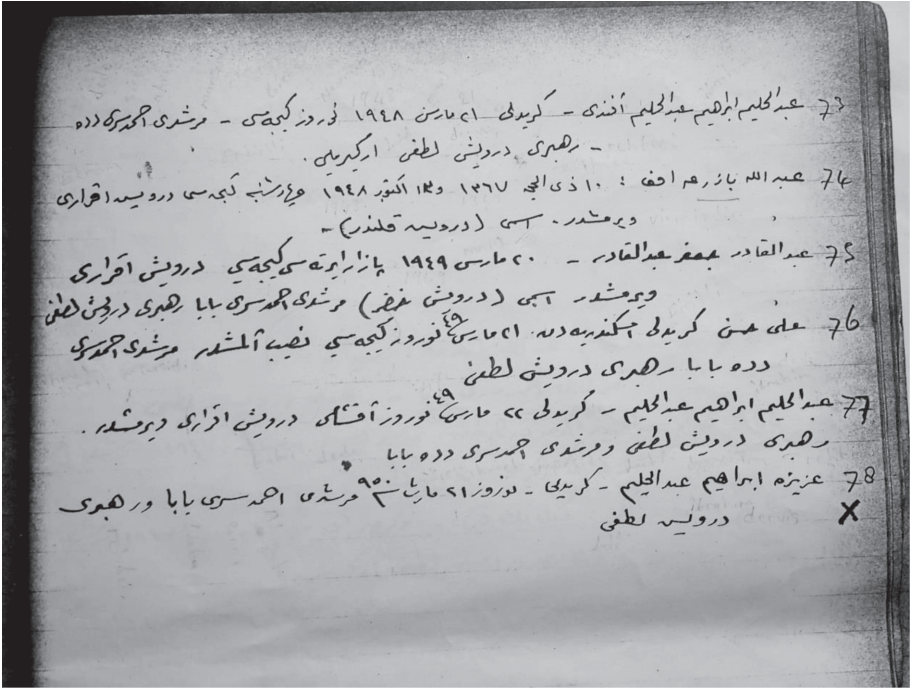 73 عبد الحليم ابراهيم عبد الحليم أفندى - كريدلى ٢١ مارس ١٩٤٨ نوروز كيجه سى - مرشدى احمد سرى دده
- رهبرى درويش لطفى اركيريلى.
74 عبد الله : ١٠ ذى الحجه ١٣٦٧ و ١٣ اكتوبر ١٩٤٨ چهارشنبه كيجه سى درويش اقرارى
ويرمشدر. اسمى (درويش قلندر) -
75 عبد القادر جعفر عبد القادر - ٢٠ مارس ١٩٤٩ پازار ايرته سى كيجه سي درويش اقرارى
ويرمشدور اسمى (درويش خضر) مرشدى احمد سرى بابا رهبرى درويش لطفى
76 على حسن كريدلى اسكندريه دن. ٢١ مارس ٤٩ نوروز كيجه سي نصيب آلمشدر مرشدى احمد سرى
دده بابا رهبرى درويش لطفى
77 عبد الحليم ابراهيم عبد الحليم - كريدلى ٢٢ مارس ٤٩ نوروز آقشامى درويش اقرارى ويرمشدر.
رهبرى درويش لطفى و مرشدى احمد سرى دده بابا
78 عزيزه ابراهيم عبد الحليم - كريدلى - نوروز ٢١ مارت ٩٥٠ مرشدى احمد سرى بابا و رهبرى
X درويش لطفى